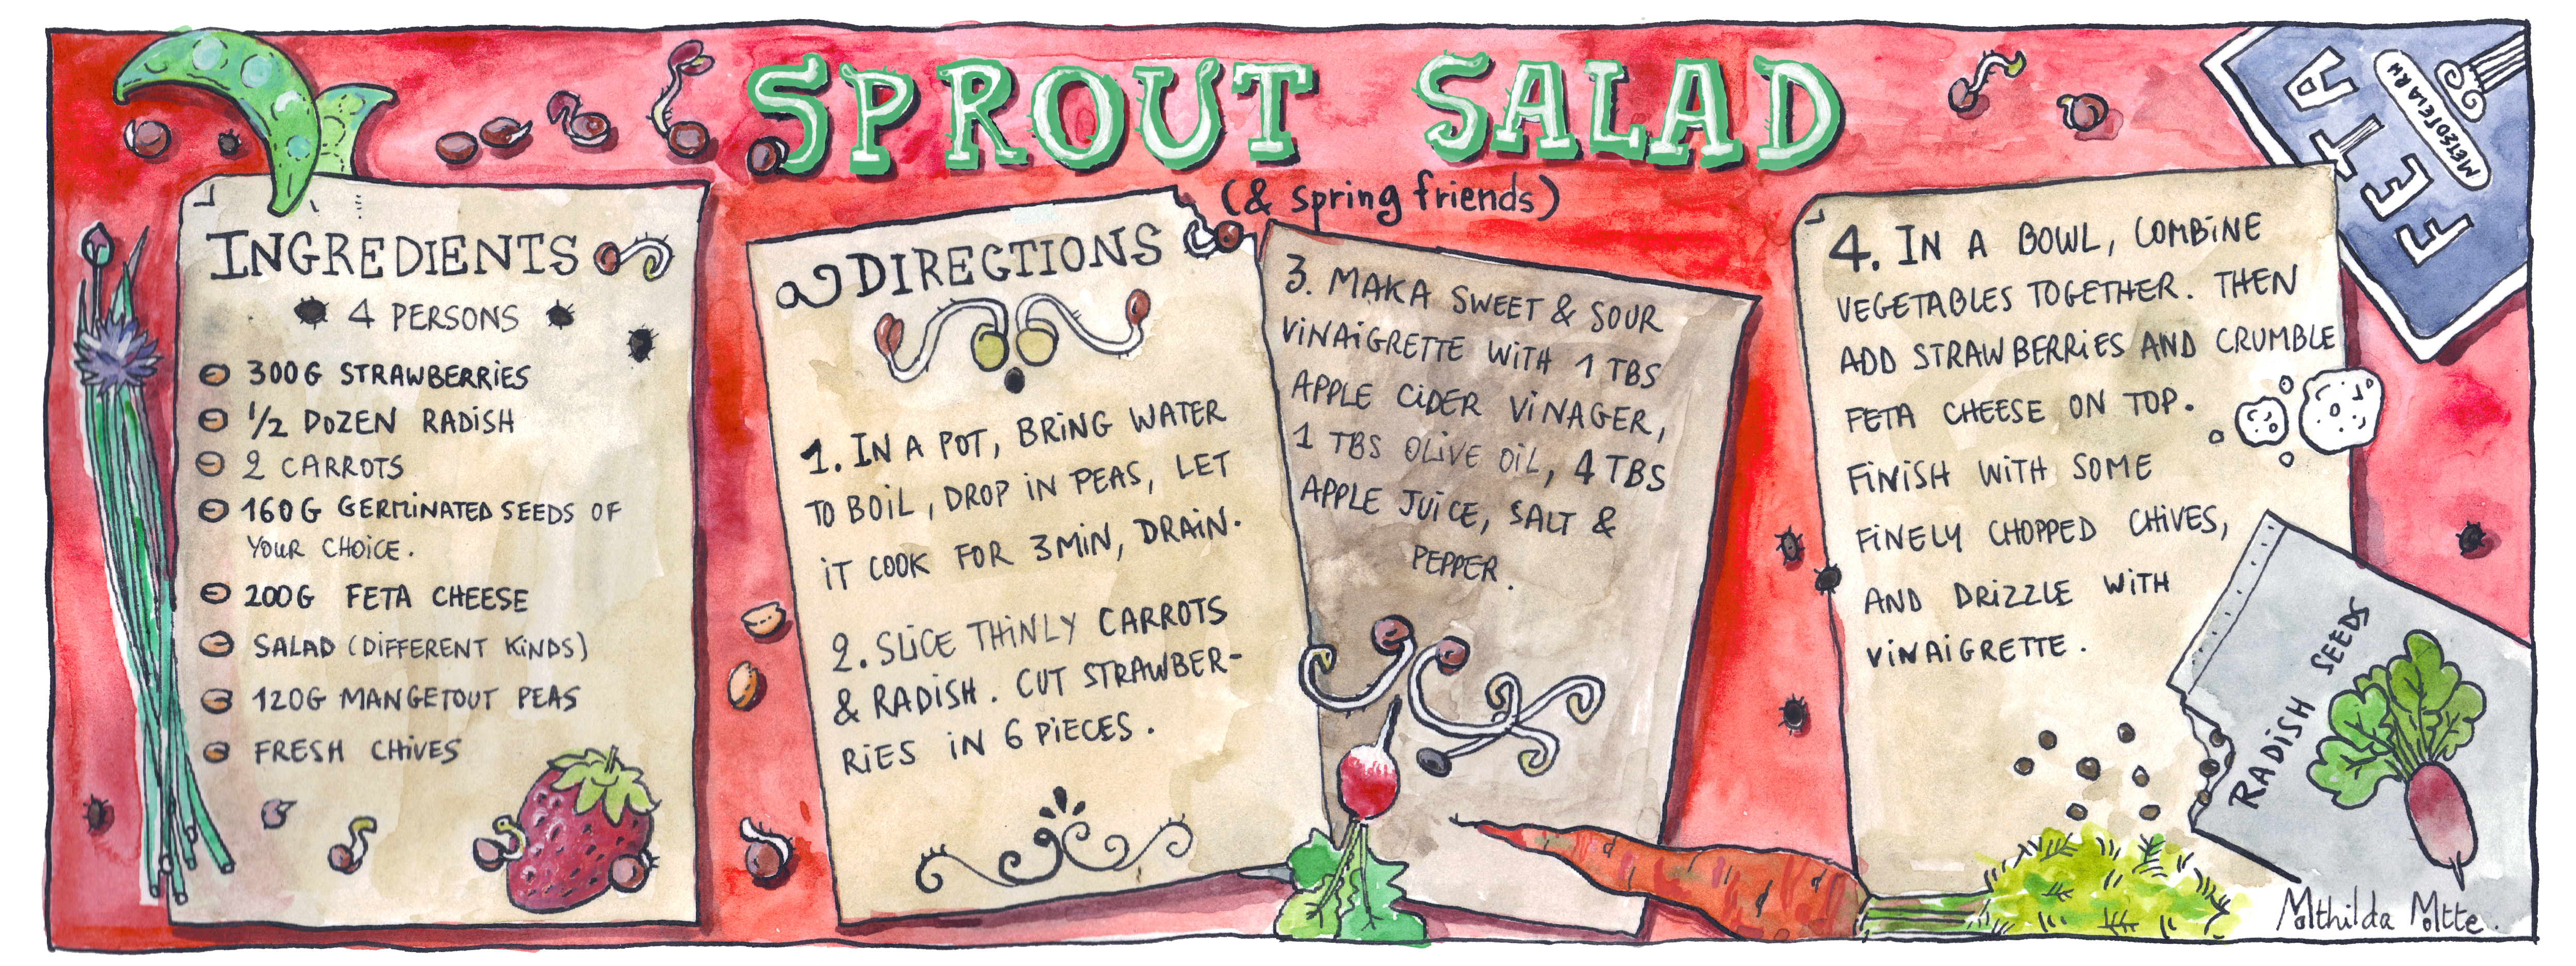 SPROUT SALAD
(& spring friends)
INGREDIENTS
4 PERSONS
300G STRAWBERRIES
1/2 DOZEN RADISH
2 CARROTS
160G GERMINATED SEEDS OF
YOUR CHOICE.
200G FETA CHEESE
SALAD (DIFFERENT KINDS)
120G MANGETOUT PEAS
FRESH CHIVES
DIRECTIONS
1. IN A POT, BRING WATER
TO BOIL, DROP IN PEAS, LET
IT COOK FOR 3MIN, DRAIN.
2. SLICE THINLY CARROTS
& RADISH. CUT STRAWBER-
RIES IN 6 PIECES.
3. MAKA SWEET & SOUR
VINAIGRETTE WITH 1 TBS
APPLE CIDER VINAGER,
1 TBS OLIVE OIL, 4 TBS
APPLE JUICE, SALT &
PEPPER.
4. IN A BOWL, COMBINE
VEGETABLES TOGETHER. THEN
ADD STRAWBERRIES AND CRUMBLE
FETA CHEESE ON TOP.
FINISH WITH SOME
FINELY CHOPPED CHIVES,
AND DRIZZLE WITH
VINAIGRETTE.
FETA
RADISH SEEDS
Mathilda Motte.